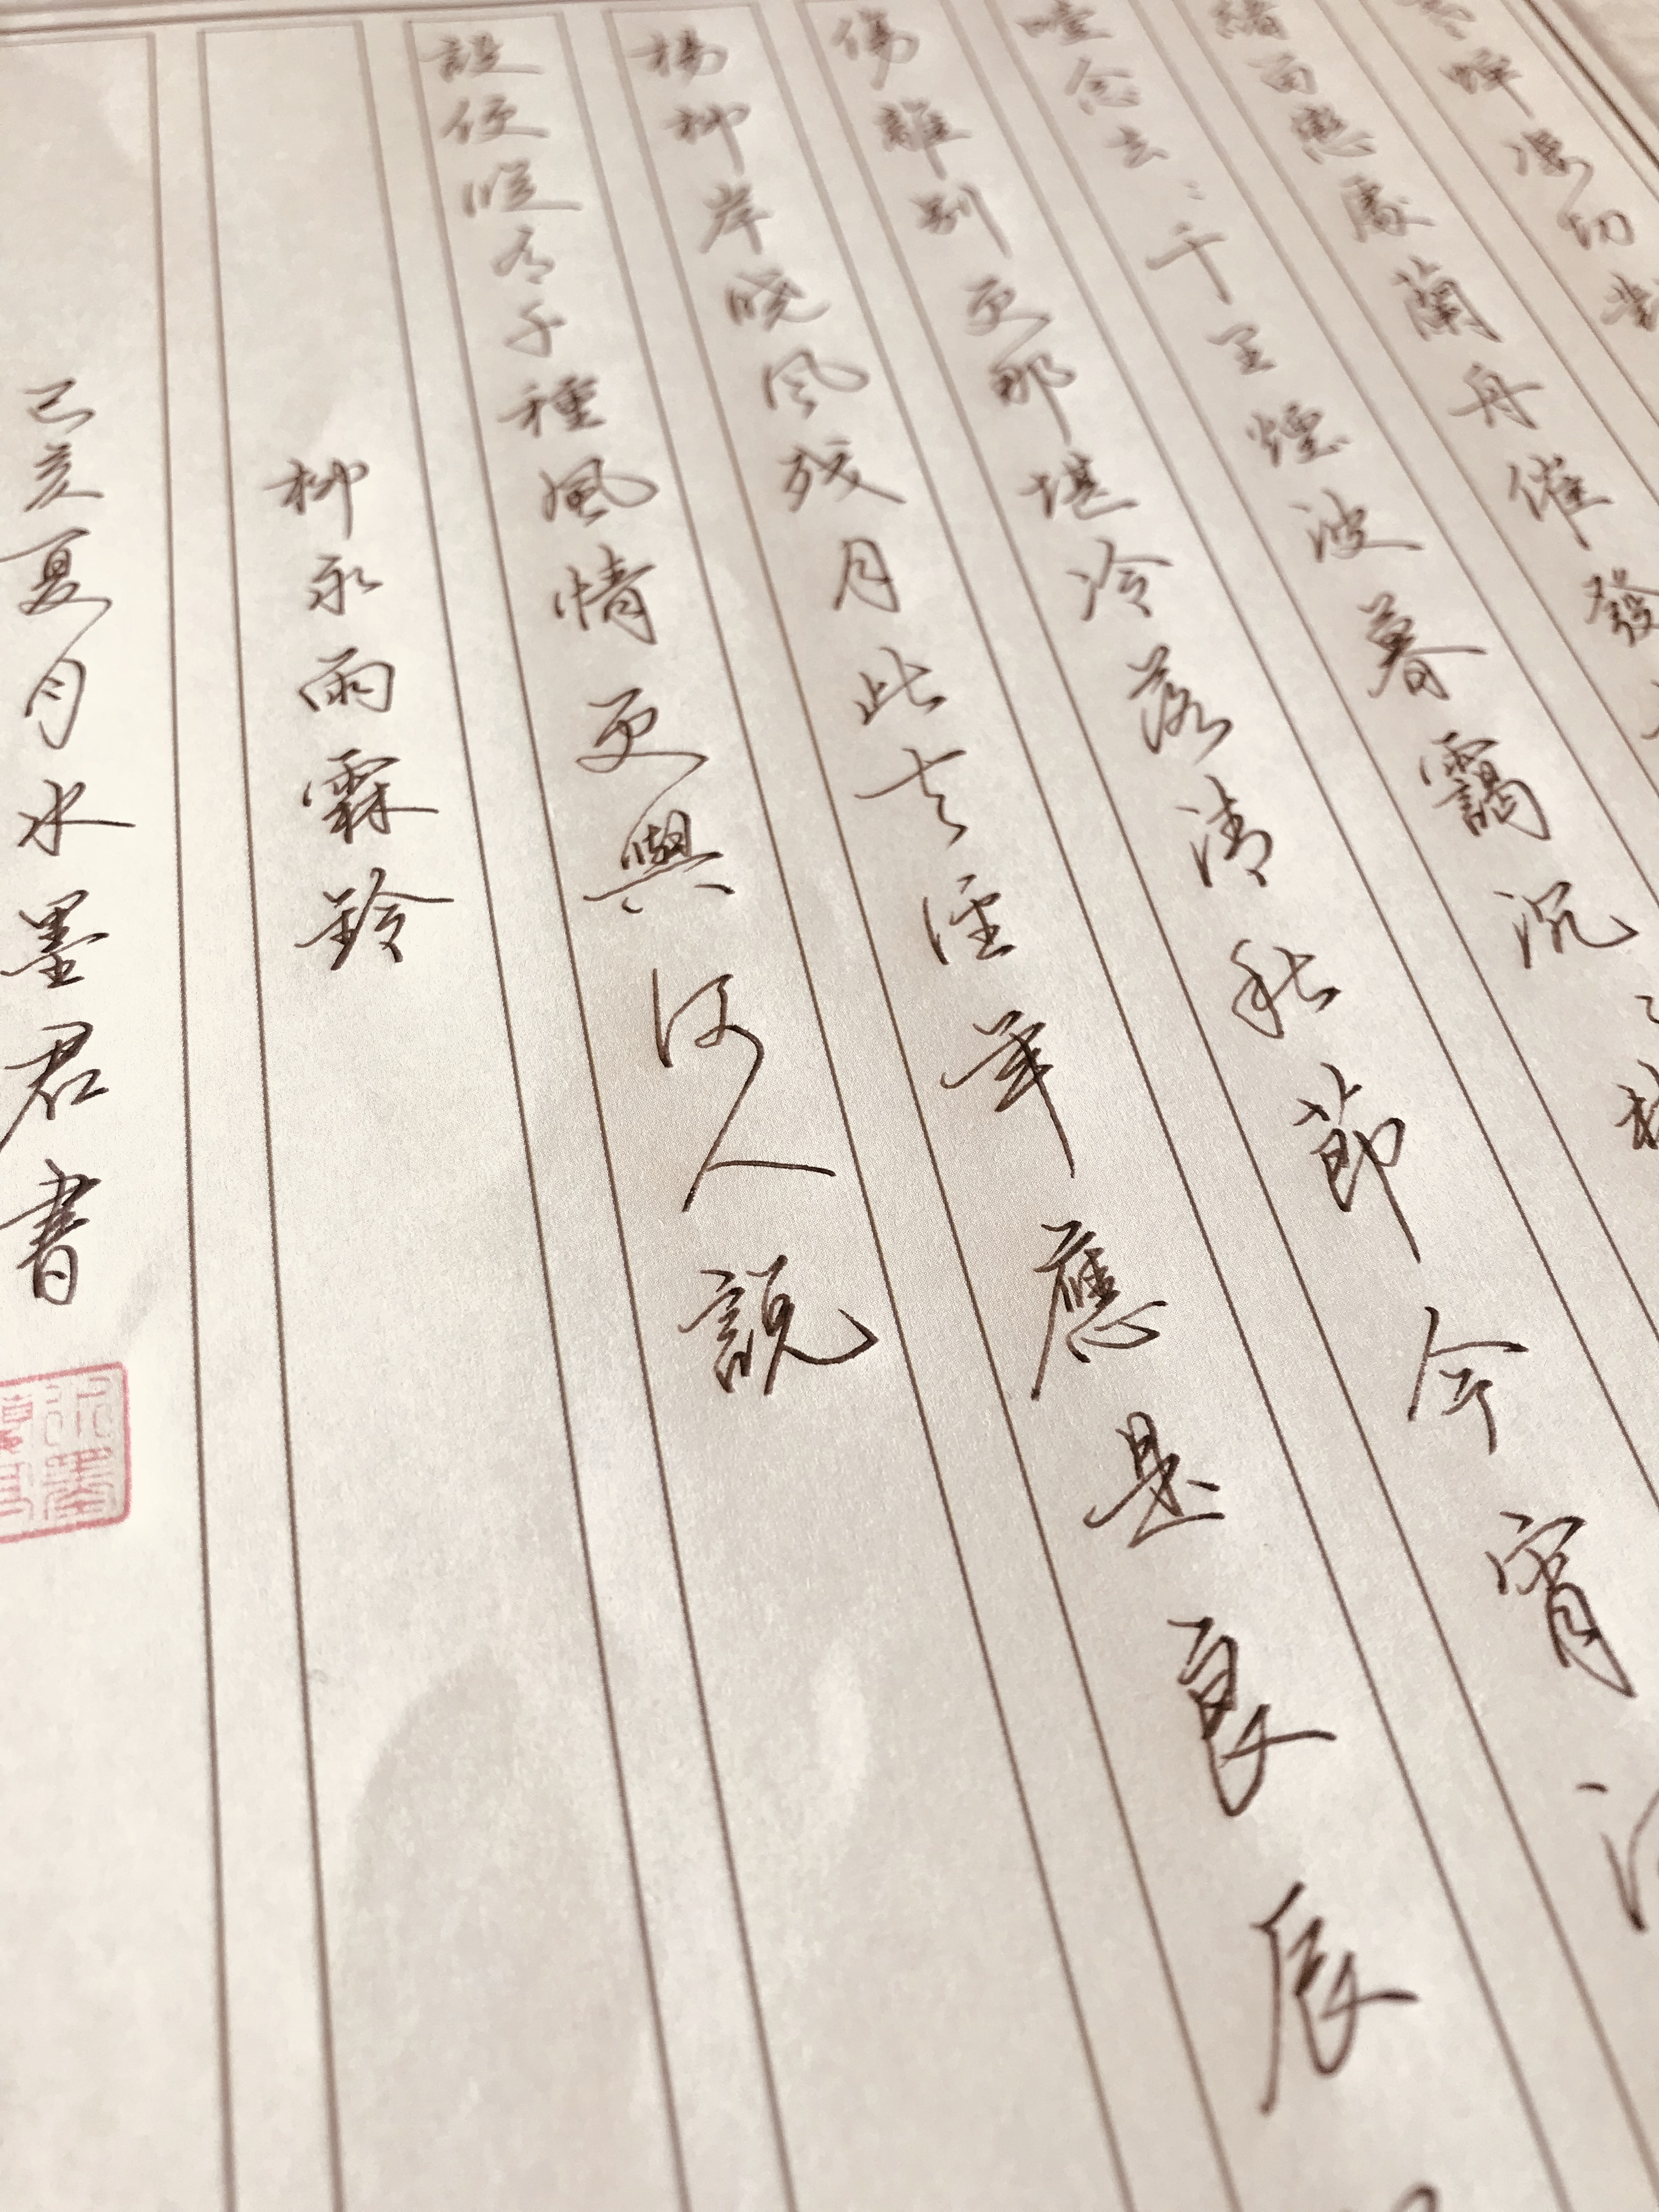 蟬凄切對
緒留戀處蘭舟催發
噎念去〻千里煙波暮靄沉〻
傷離別更那堪冷落清秋節今宵酒
楊柳岸曉風殘月此去經年應是良辰
設便縱有千種風情更與何人說
柳永雨霖鈴
己亥夏月水墨君書